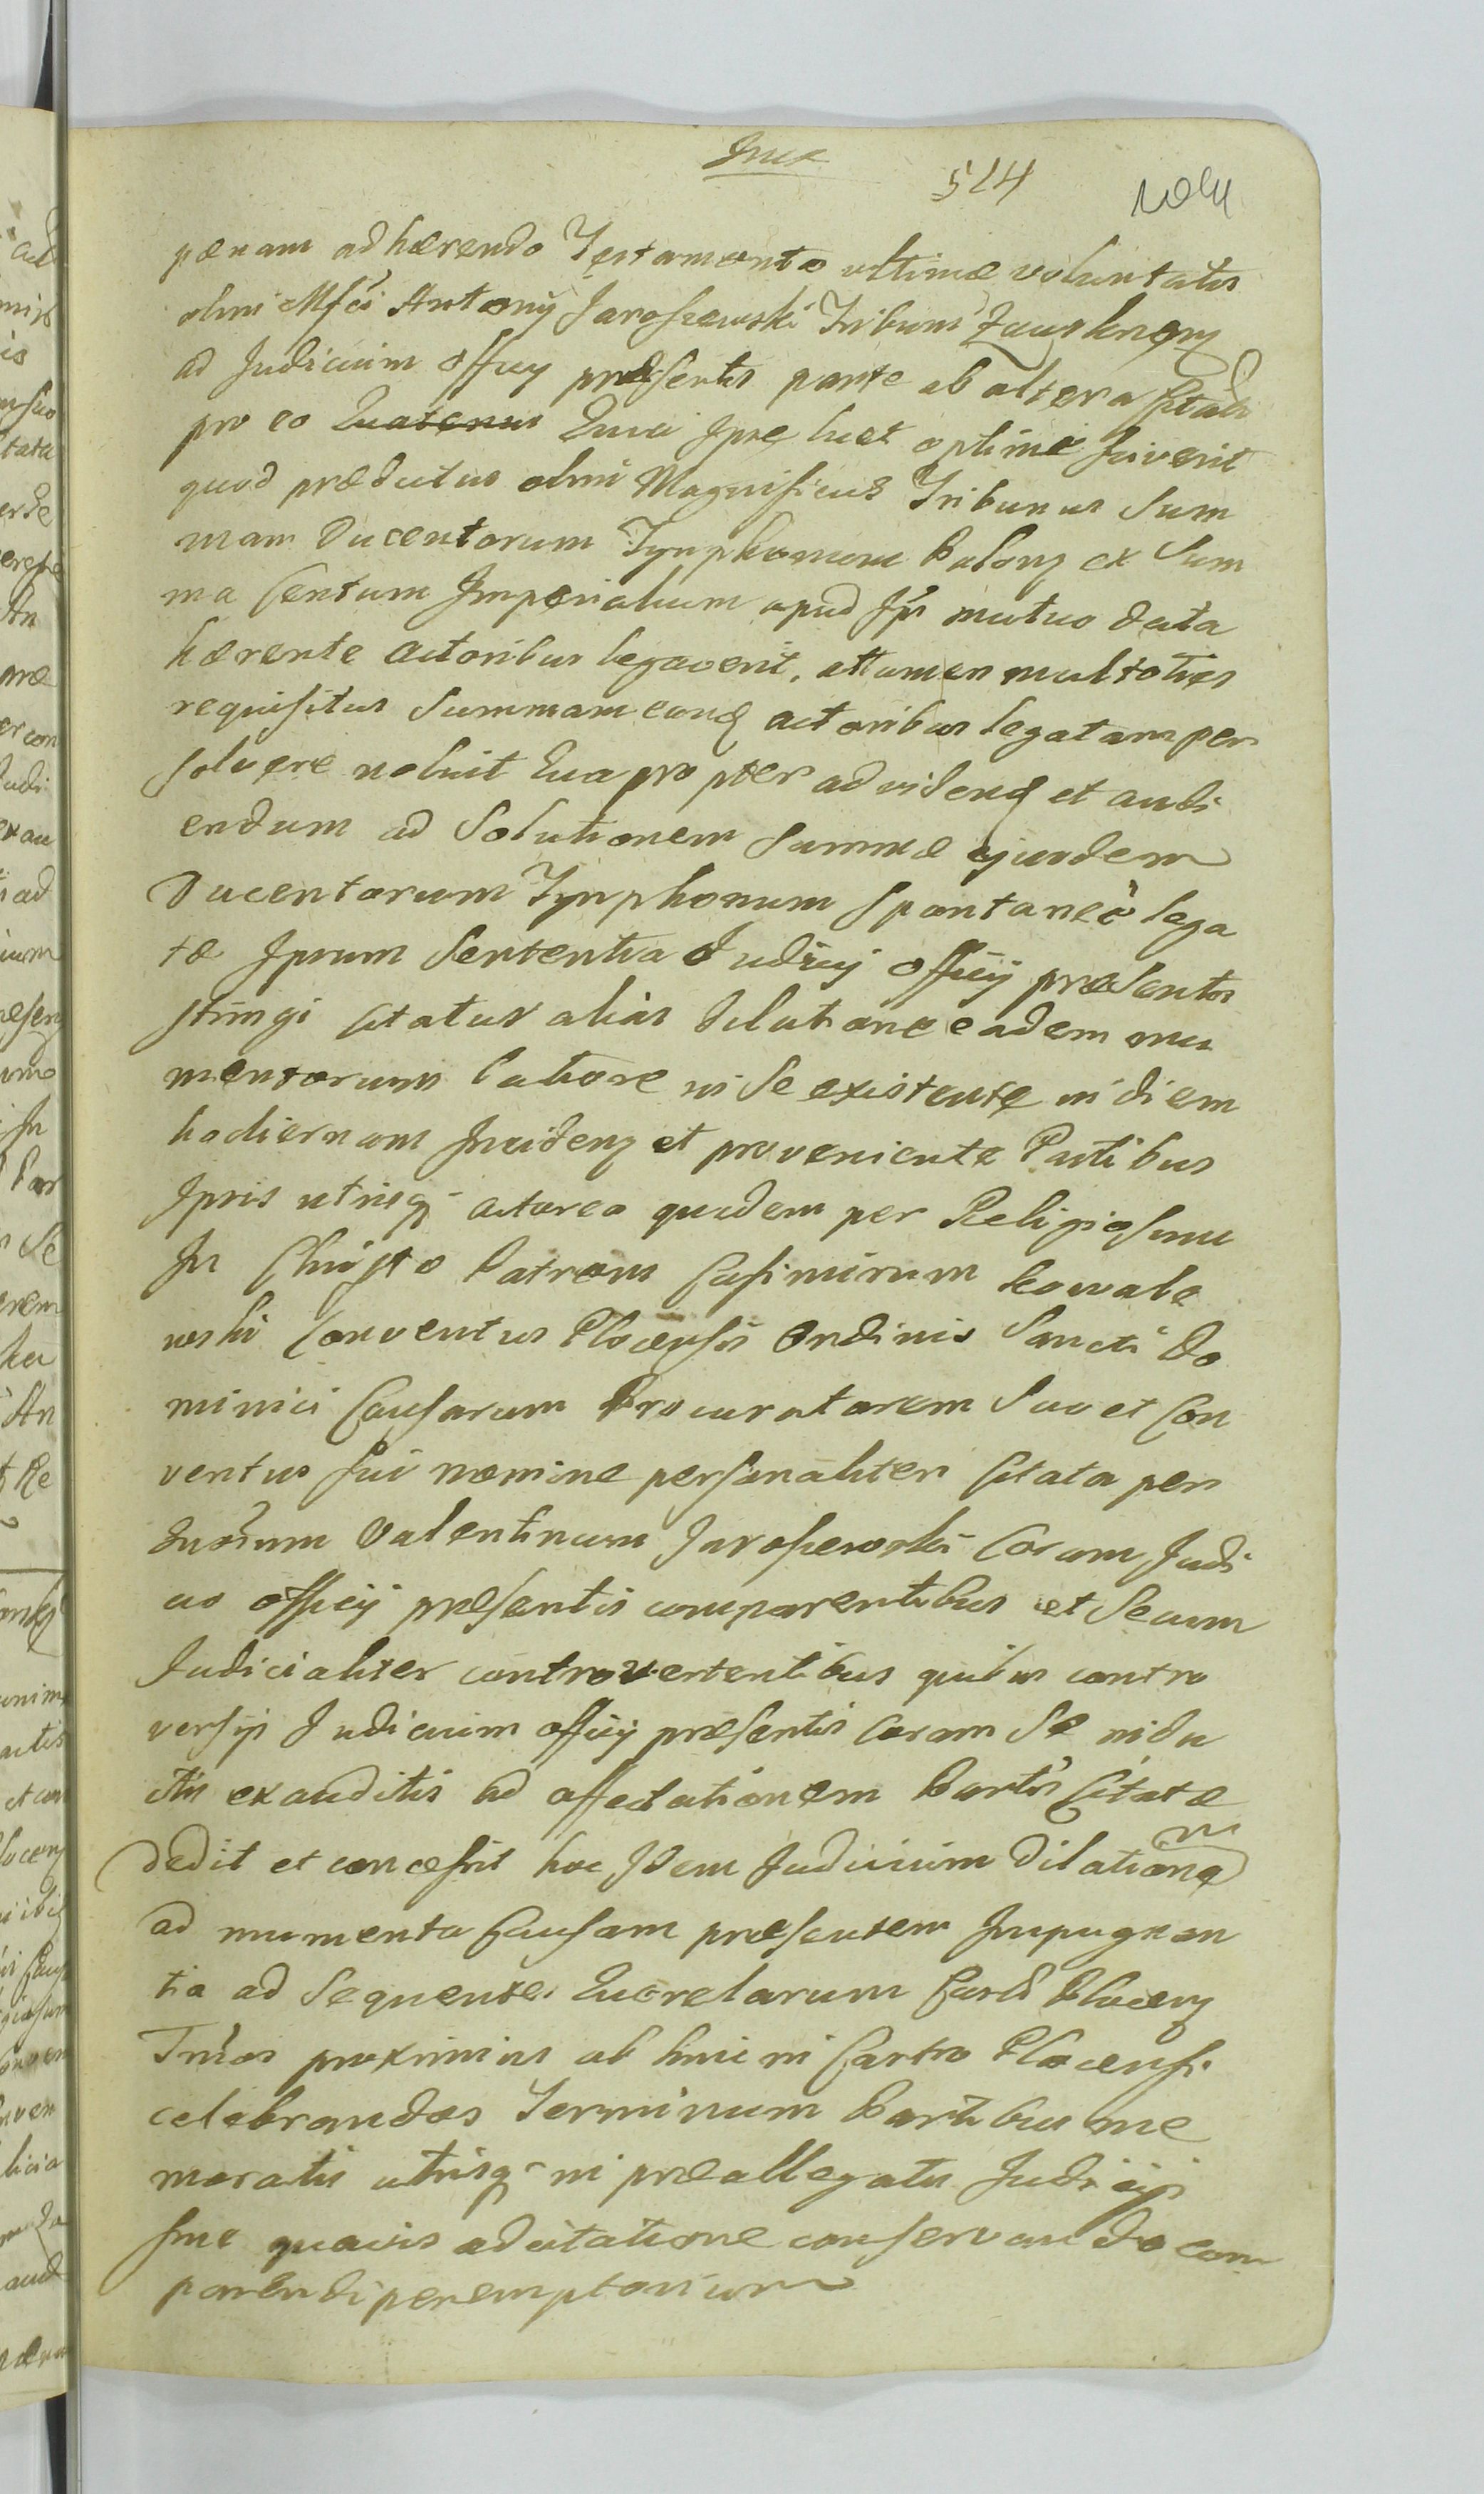 514
pœnam adhærendo Testamento ultimæ voluntatis
olim Mfci Antonij Jaroszewski Tribuni
ad Judicium officij præsentis parte ab altera
pro eo Quatenus Quia Ipse licet optime sciverit
quod prædictus olim Magnificus Tribunus Sum
mam Ducentorum Tynphonum Polonz ex Sum
ma Centum Imperialium apud Ip̃m mutuo data
hærente actoribus legaverit, attamen multoties
requisitus Summam eand actoribus legatam per
solvere noluit Quapropter ad vidend et audi
endum ad Solutionem Summæ ejusdem
Ducentorum Tynphonum spontaneè lega
tæ Ipsum Sententia Judicij officij præsentis
stringi citatus alias dilatione eadem mu
mentorum latiore in se existente in diem
hodiernam Incidenz et proveniente Partibus
Ipsis utrisqz actorea quidem per Religiosum
In Christo Patrem Casimirum Kowale
wski Conventus Plocensis Ordinis Sancti Do
minici Causarum Procuratorem Suo et Con
ventus sui nomine personaliter Citata per
Valentinum Jaroszewski Coram Judi
cio officij præsentis comparentibus et Secum
Judicialiter controvertentibus quibus contro
versijs Judicium officij præsentis coram Se
exauditis ad affectationem Partis Citatæ
dedit et concessit hoc Idem Judicium Dilationem
ad munimenta Causam præsentem Impugnan
tia ad Sequentes Querelarum Castr Plocenz
Tm̃os proximius ab hinc in Castro Plocensi
celebrandos Terminum Partibus me
moratis utrisqz in præallegatis Judicijs
sine quavis adcitatione conservando com
parendi peremptorium